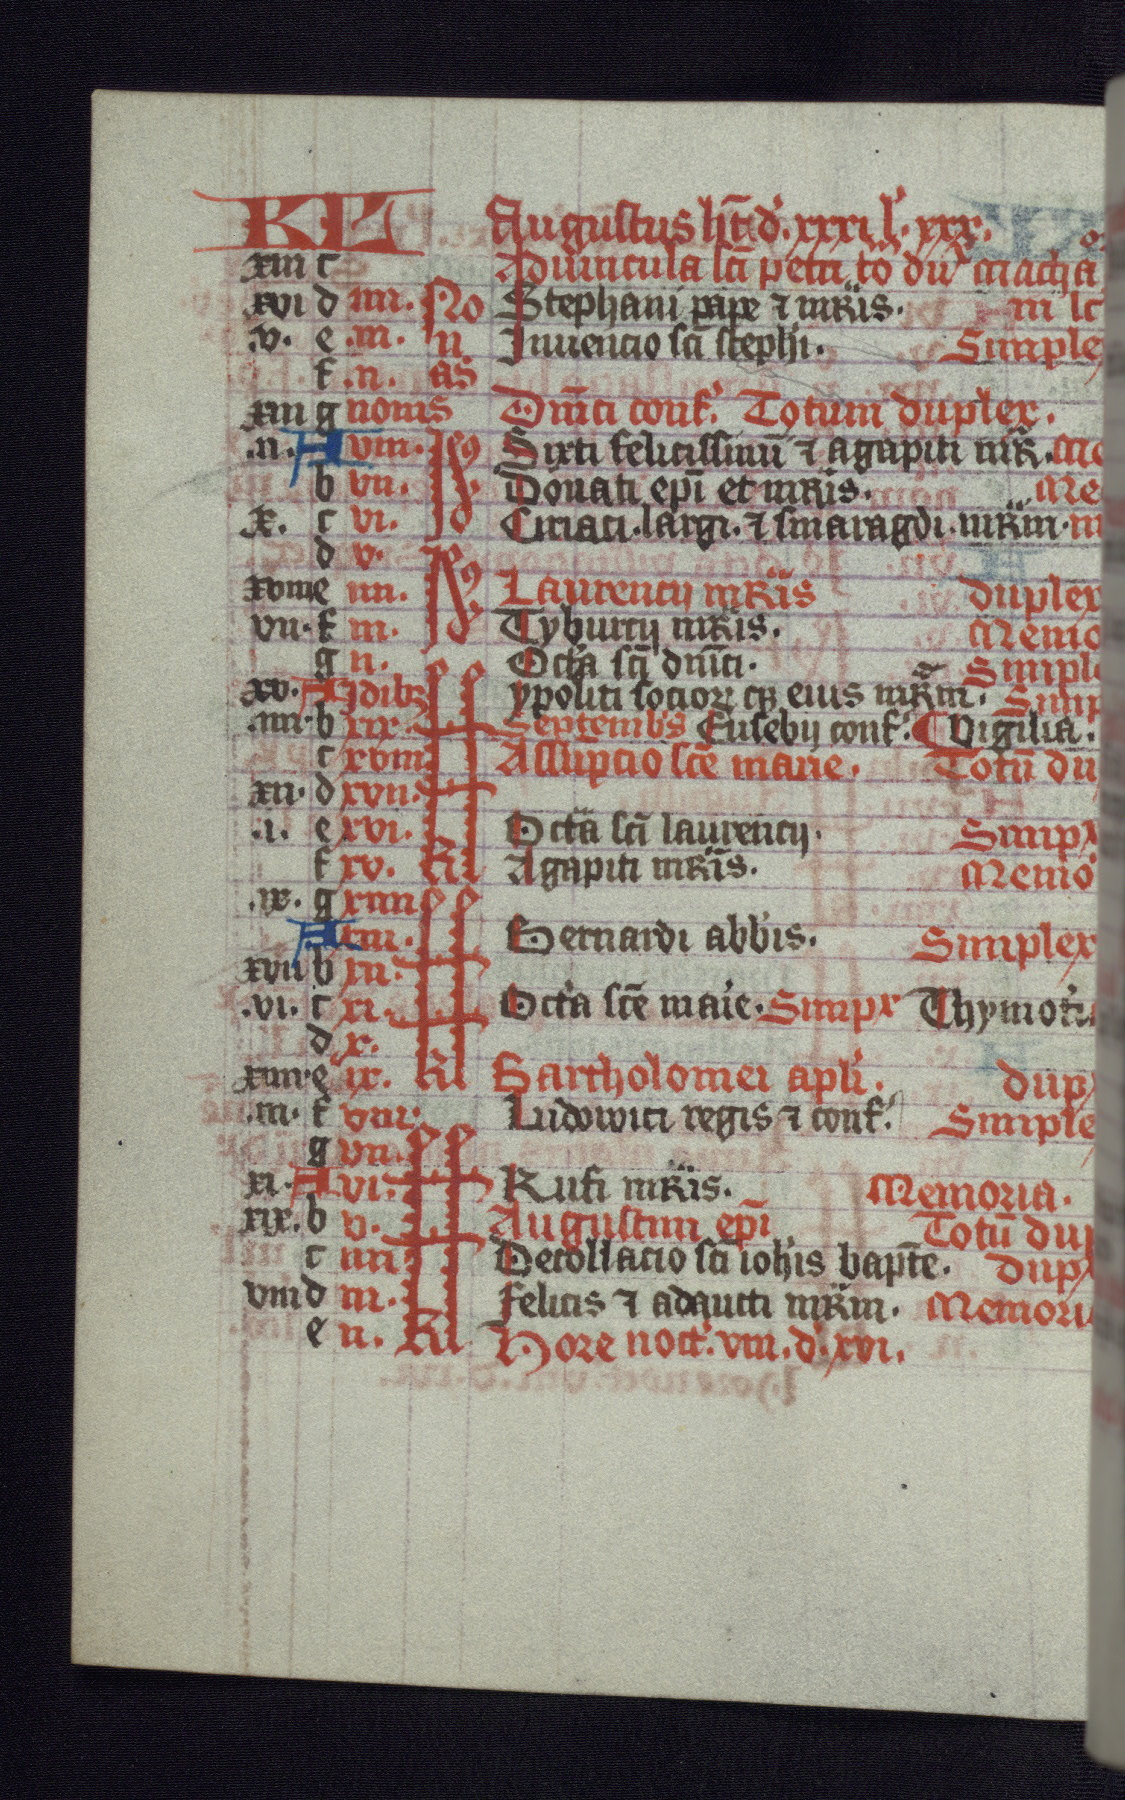 KL Augustus h̄t d'. xxxi l'. xxx.
xiii c Aduincula sc̄i petri to du
xvi d iiii. No Stephani pape ⁊ mr̄is.
.v. e .iii. n Inuencio sc̄i steph̄i. Simple
f .ii. as
xiii g nonis Dn̄ici conf'. Totum duplex.
.ii. A viii. Id Sixti felicissimi ⁊ agapiti mr̄.
b vii. Donati ep̄i et mr̄is. Me
x. c vi. Ciriaci. largi. ⁊ smaragdi. mr̄m.
d v. Id
xviii e iiii. Laurencij mr̄is duplex
vii. f iii. Tyburcij mr̄is. Memo
g ii. Oct̄a sc̄i dn̄ici. Simpl
xv. A Idibꝫ ypoliti socioꝝ qꝫ eius mr̄m. Simp
.iiii. b xix. Septembr̄s Eusebij conf'. Vigilia.
c xviii Assūpcio sc̄e marie. Totū du
xii. d xvii.
.i. e xvi. Oct̄a sc̄i laurencij. Simpx
f xv. Kl Agapiti mr̄is. Memo
.ix. g xiiii
A xiii. Bernardi abb̄is. Simplex
xvii b xii.
.vi. c xi. Oct̄a sc̄e maīe. Simpx Thymot
d x.
xiiii e ix. Kl Bartholomei apl̄i. dupx
.iii. f viii. Ludowici regis ⁊ conf'. Simple
g vii.
xi. A vi. Rufi mr̄is. Memoria.
xix. b v. Augustini ep̄i Totū dup
c iiii Decollacio sc̄i ioh̄is bapt̄e. dupx
viii d iii. Felicis ⁊ adaucti mr̄m. Memori
e ii. Kl Hore noct'. viii. d'. xvi.